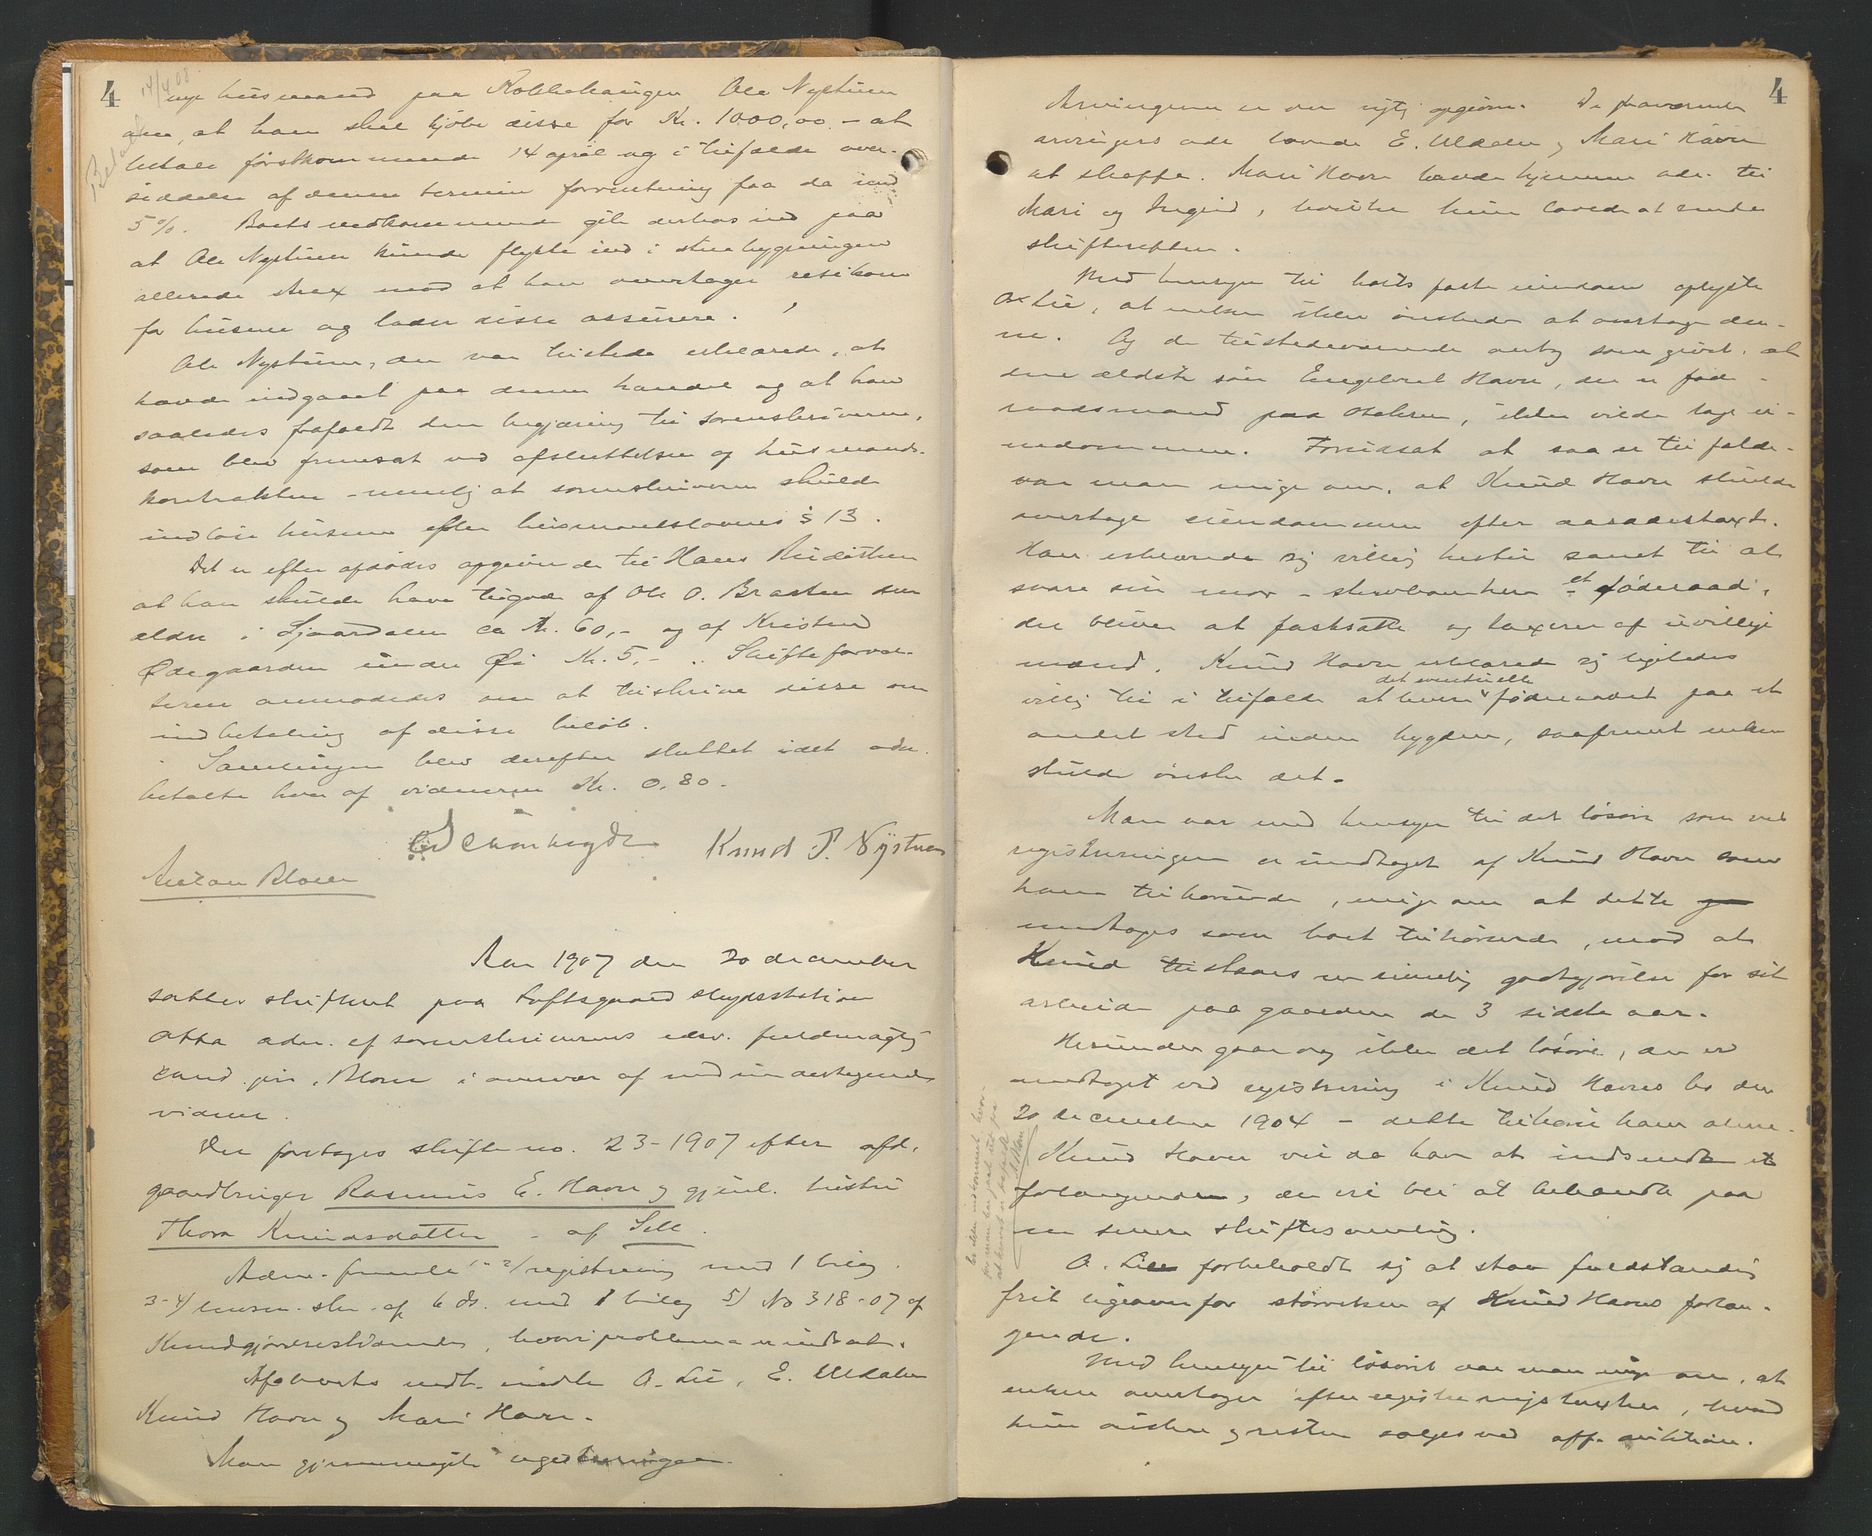 4
14/4 08.
Betalt
nye husmand paa Kobbehaugen Ole Nystuen
om, at han skal kjøbe disse for Kr. 1000,00 - at
betale førstkommende 14 april og i tilfælde over-
siddelse af denne termin forrentning fra da med
5%. Boets vedkommende gik derhos ind paa
at Ole Nystuen kunde flytte ind i stuebygningen
allerede strax mod at han overtager risikoen
for husene og lader disse assurere.
Ole Nystuen, der var tilstede erklærede, at
havde indgaaet paa denne handel og at han
saaledes frafaldt den begjæring til sorenskriveren,
som blev fremsat ved afsluttelsen af husmands-
kontrakten - nemlig at sorenskriveren skulde
indløse husene efter husmandslovens § 13.
Det er efter afdødes opgivende til Hans
at han skulde have tilgode af Ole O. Braaten den
ældre i ca Kr. 60,- og af Kristen
Ødegaarden under Øi Kr. 5,- . Skifteforval-
teren anmodedes om at tilskrive disse om
indbetaling af disse beløb.
Samlingen blev derefter sluttet idet adm.
betalte hver af vidnerne Kr. 0,80.
Knud P. Nystuen
Anton Blom
Aar 1907 den 20 december
sattes skifteret paa Loftsgaard skydsstation
adm. af sorenskriverens edsv. fuldmægtig
cand. jur. Blom i overvær af undertegnede
vidner.
Der foretoges skifte no. 23-1907 efter afd.
gaardbruger Rasmus E. Havn og gjenl. hustru
Thora Knudsdatter - af Sell.
Adm. fremla 1- 2/ registrering med 1 bilag.
3-4/ af 6 ds. med 1 bilag 5/ No 318-07 af
Kundgjørelsestidende, hvori proklama er indsat.
Afdødes mødte O. Lie, E. Uldalen
Knud Havn og Mari Havn.
Man gjennemgik registreringen.
4
Arvingerne er der rigtig opgivne. De fraværende
arvingers adr. lovede E. Uldalen og Mari Havn
at skaffe. Mari Havn havde hjemme adr. til
Mari og Ingrid, hvilke hun lovede at sende
skifteretten.
Med hensyn til boets faste eiendom oplyste
O. Lie, at enken ikke ønskede at overtage den-
ne. Og de tilstedeværende antog som givet, at
den ældste søn Engebret Havn, der er føde-
raadsmand paa, ikke vilde tage ei-
endommen. Forudsat at saa er tilfælde
var man enige om, at Knud Havn skulde
overtage eiendommen efter aasædestaxt.
Han erklærede sig villig hertil samt til at
svare sin mor - sterboenken - et føderaad,
der bliver at fastsætte og taxere af uvillige
mænd. Knud Havn erklærede sig ligeledes
det eventuelle
villig til i tilfælde at levere føderaadet paa et
andet sted inden bygden, saafremt enken
skulde ønske det.
Man var med hensyn til det løsøre som ved
registreringen er undtaget af Knud Havn som
ham tilhørende, enige om at dette
medtages som boet tilhørende, mod at
Knud tilstaaes en rimelig godtgjørelse for sit
arbeide paa gaarden de 3 sidste aar.
Herunder gaar og ikke det løsøre, der er
medtaget ved registrering i Knud Havns bo den
20 december 1904 - dette tilhører ham alene.
Knud Havn vil da have at indsende et
forlangende, der vil bli at behandle paa
en senere skiftesamling.
O. Lie forbeholdt sig at staa fuldstændig
frit ligeoverfor størrelsen af Knud Havns forlan-
gende.
Med hensyn til løsøret var man enige om, at
enken overtager efter registreringstaxten, hvad
hun ønsker og resten sælges ved off. auktion.